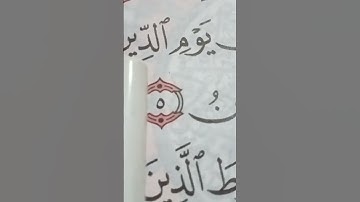 يَوْمِ ٱلدِّينِ
نُ ٥
طَ ٱلَّذِينَ